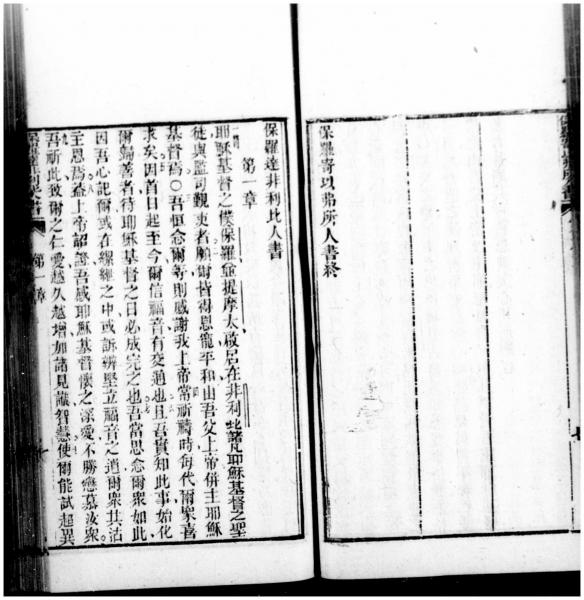 保羅寄以弗所人書終
保羅達非利比人書
第一章
耶穌基督之僕保羅兼提摩太啟居在非利比諸凡耶穌基督之聖
徒與監司觀吏者願爾皆得恩寵平和由吾父上帝併主耶穌
基督焉○吾恒念爾等則感謝我上帝常祈禱時每代爾眾喜
求矣因首日起至今爾信福音有交通也且吾實知此事始化
爾歸善者待耶穌基督之日必成完之也吾當思念爾眾如此
因吾心記爾或在縲絏之中或訴辨堅立福音之道爾眾共沾
主恩焉蓋上帝詔證吾感耶穌基督懷之深愛不勝戀慕汝眾
吾祈此致爾之仁愛越久越增加諸見識智慧使爾能試起異
第 章